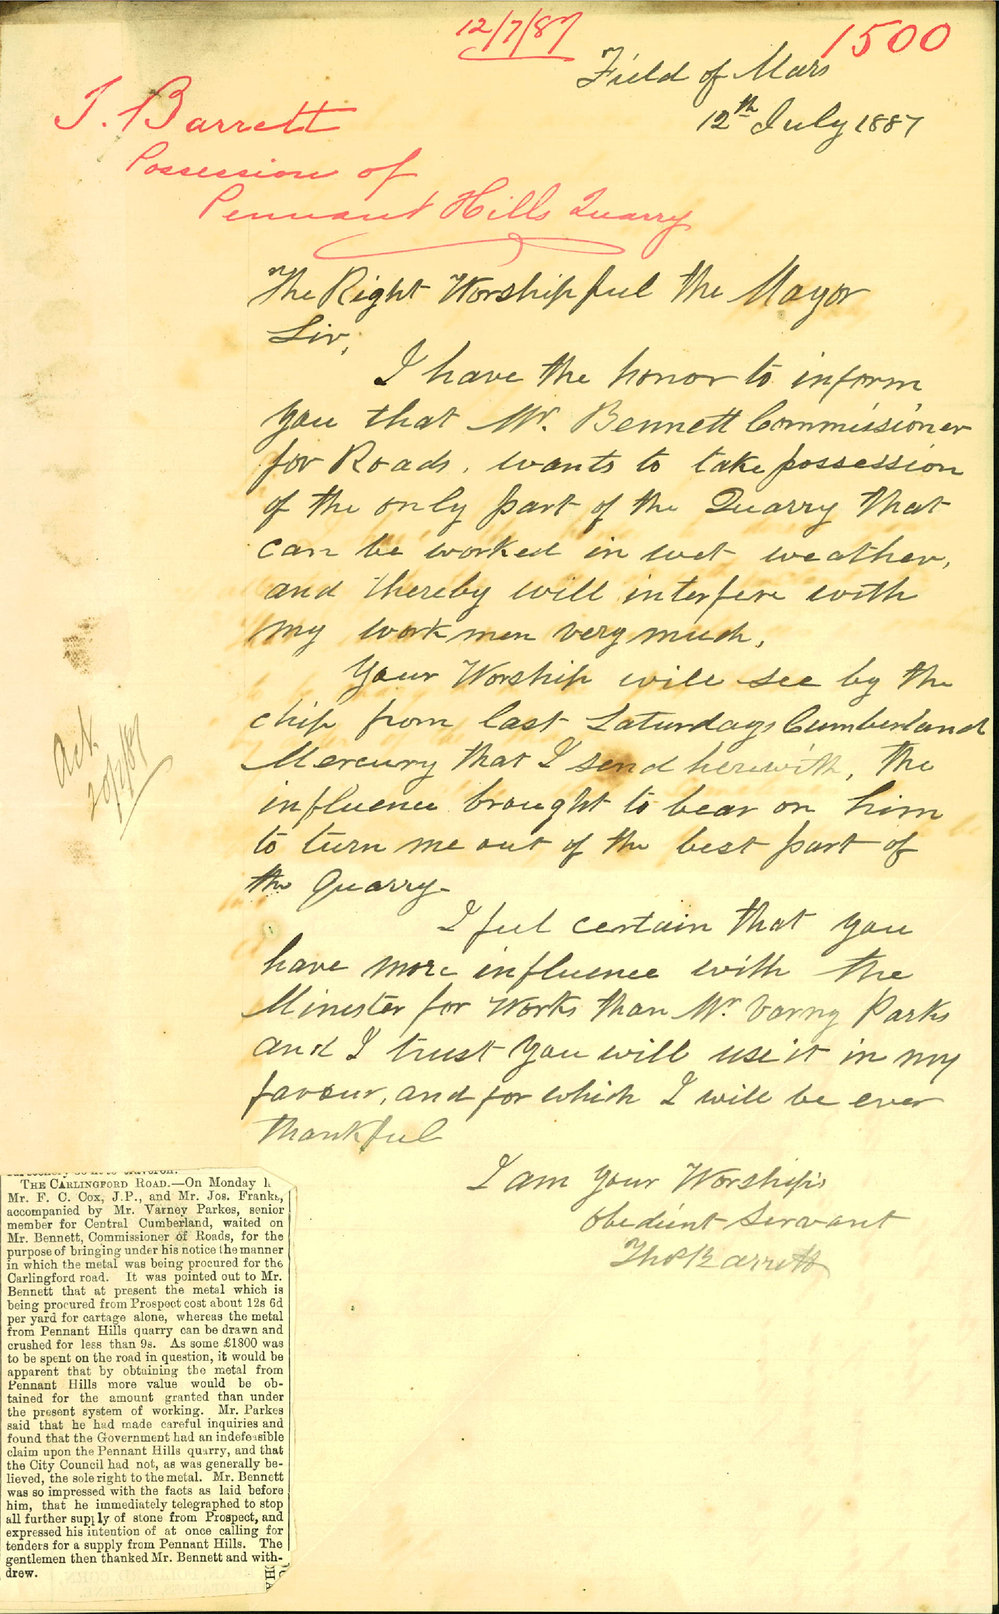 12/7/87
1500
Field of Mars
12th July 1887
T. Barrett
Possession of
Pennant Hills Quarry
The Right Worshipful the Mayor
Sir,
I have the honor to inform
you that Mr. Bennett Commissioner
for Roads. wants to take possession
of the only part of the Quarry that
can be worked in wet weather,
and thereby will interfere with
my work men very much,
Your Worship will see by the
chip from last Saturdays Cumberland
Mercury that I send herewith, the
influence brought to bear on him
to turn me out of the best part of
the Quarry.
I feel certain that you
have more influence with the
Minester for Works than Mr. Varny Parks
and I trust you will use it in my
favour, and for which I will be ever
thankful
I am Your Worship's
obedient servant
Thos Barrett
Ack.
20/7/87
THE CARLINGFORD ROAD.—On Monday
Mr. F. C. Cox, J.P., and Mr. Jos. Franks,
accompanied by Mr. Varney Parkes, senior
member for Central Cumberland, waited on
Mr. Bennett, Commissioner of Roads, for the
purpose of bringing under his notice the manner
in which the metal was being procured for the
Carlingford road. It was pointed out to Mr.
Bennett that at present the metal which is
being procured from Prospect cost about 12s 6d
per yard for cartage alone, whereas the metal
from Pennant Hills quarry can be drawn and
crushed for less than 9s. As some £1300 was
to be spent on the road in question, it would be
apparent that by obtaining the metal from
Pennant Hills more value would be ob-
tained for the amount granted than under
the present system of working. Mr. Parkes
said that he had made careful inquiries and
found that the Government had an indefeasible
claim upon the Pennant Hills quarry, and that
the City Council had not, as was generally be-
lieved, the sole right to the metal. Mr. Bennett
was so impressed with the facts as laid before
him, that he immediately telegraphed to stop
all further supply of stone from Prospect, and
expressed his intention of at once calling for
tenders for a supply from Pennant Hills. The
gentlemen then thanked Mr. Bennett and with-
drew.